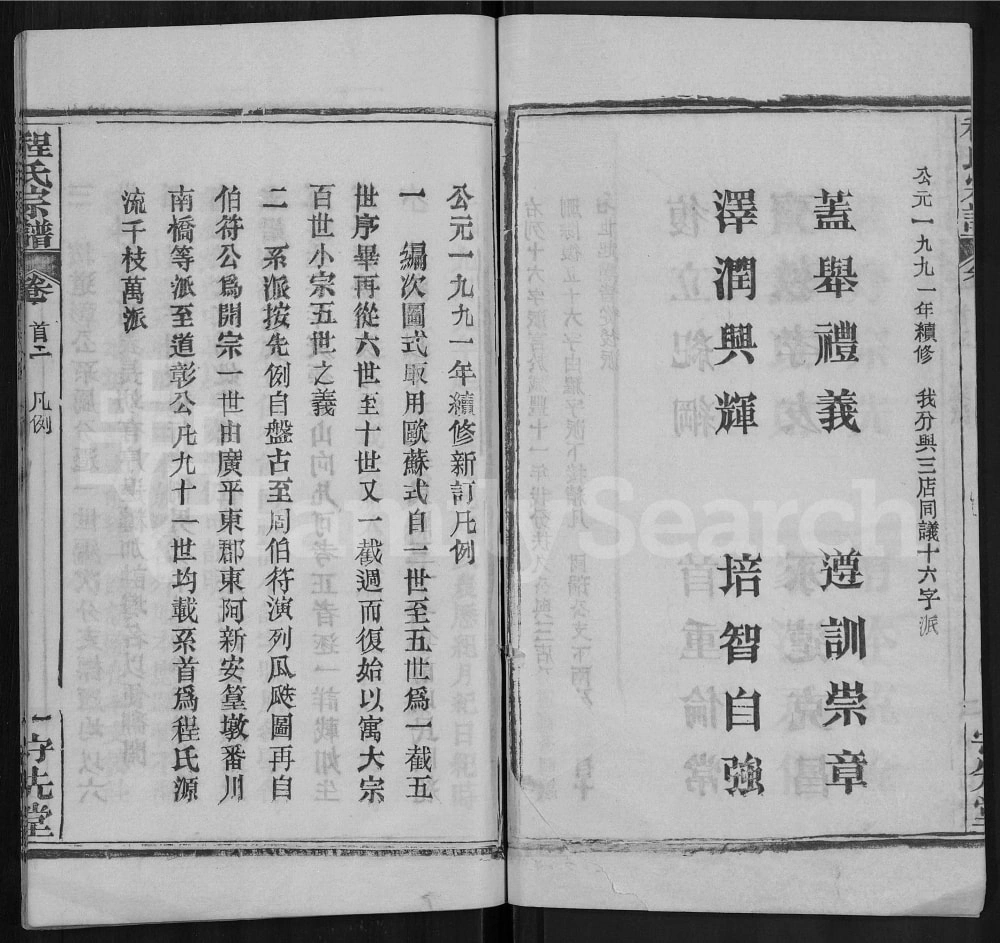 公元一九九一年續修 我分與三店同議十六字派
蓋舉禮義 遵訓崇章
澤潤興輝 培智自強
公元一九九一年續修新訂凡例
一 編次圖式取用歐蘇式自一世至五世爲一截五
世序畢再從六世至十世又一截週而復始以寓大宗
百世小宗五世之義
二 系派按先例自盤古至周伯符演列瓜瓞圖再自
伯符公爲開宗一世由廣平東郡東阿新安篁墩番川
南橋等派至道彰公凡九十一世均載系首爲程氏源
流千枝萬派
程氏宗譜 卷 首二 凡例 一 守先堂
FamilySearch